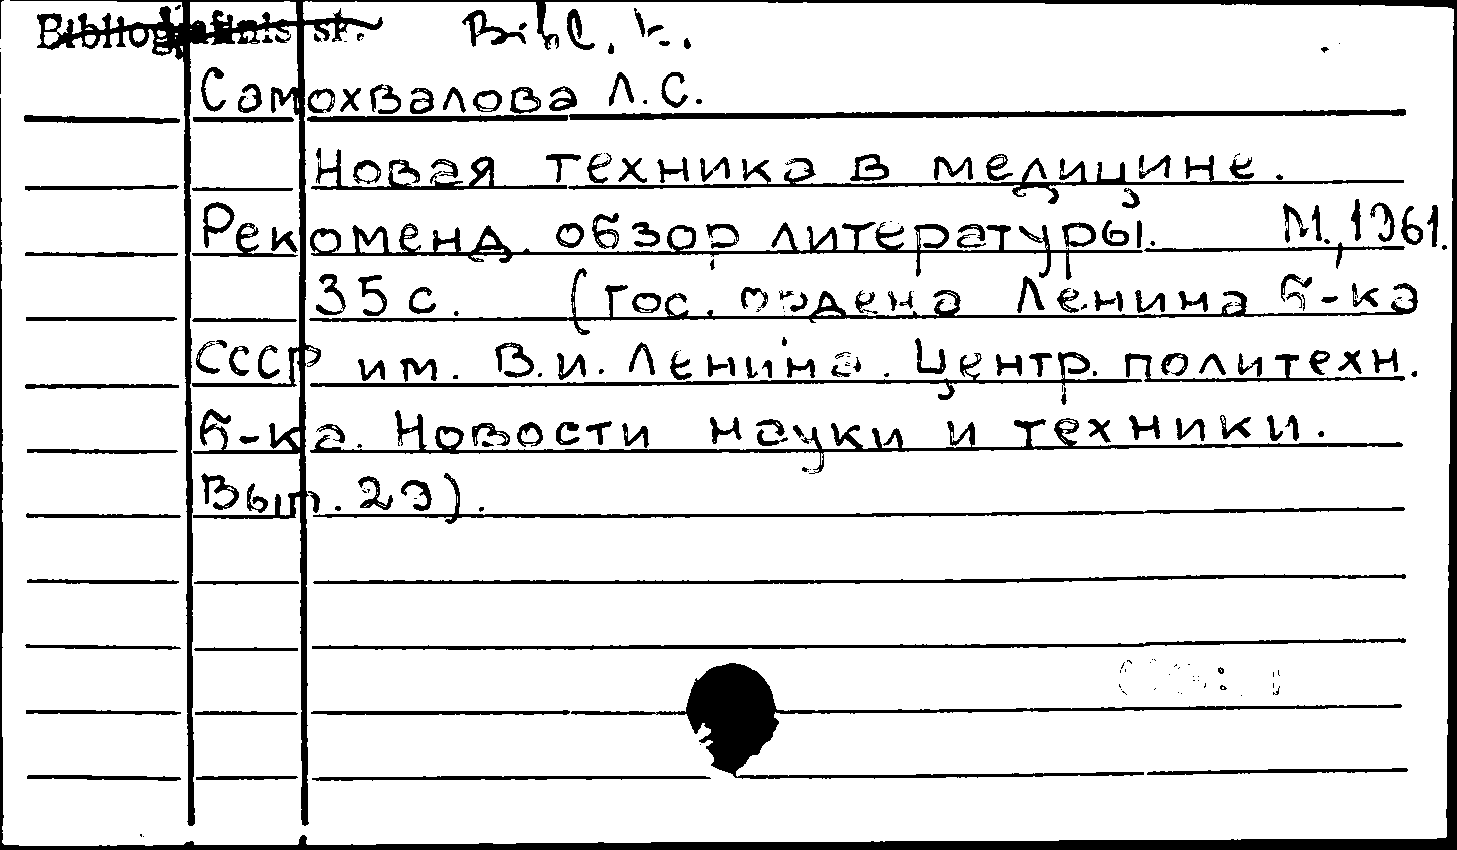 Bibliografinis sk. Bibl. k.
Самохвалова Л.С.
Новая техника в медицине.
Рекоменд. обзор литературы. М., 1961.
35 с. (Гос. ордена Ленина б-ка
СССР им. В.И. Ленина. Центр. политехн.
б-ка. Новости науки и техники.
Вып. 29).